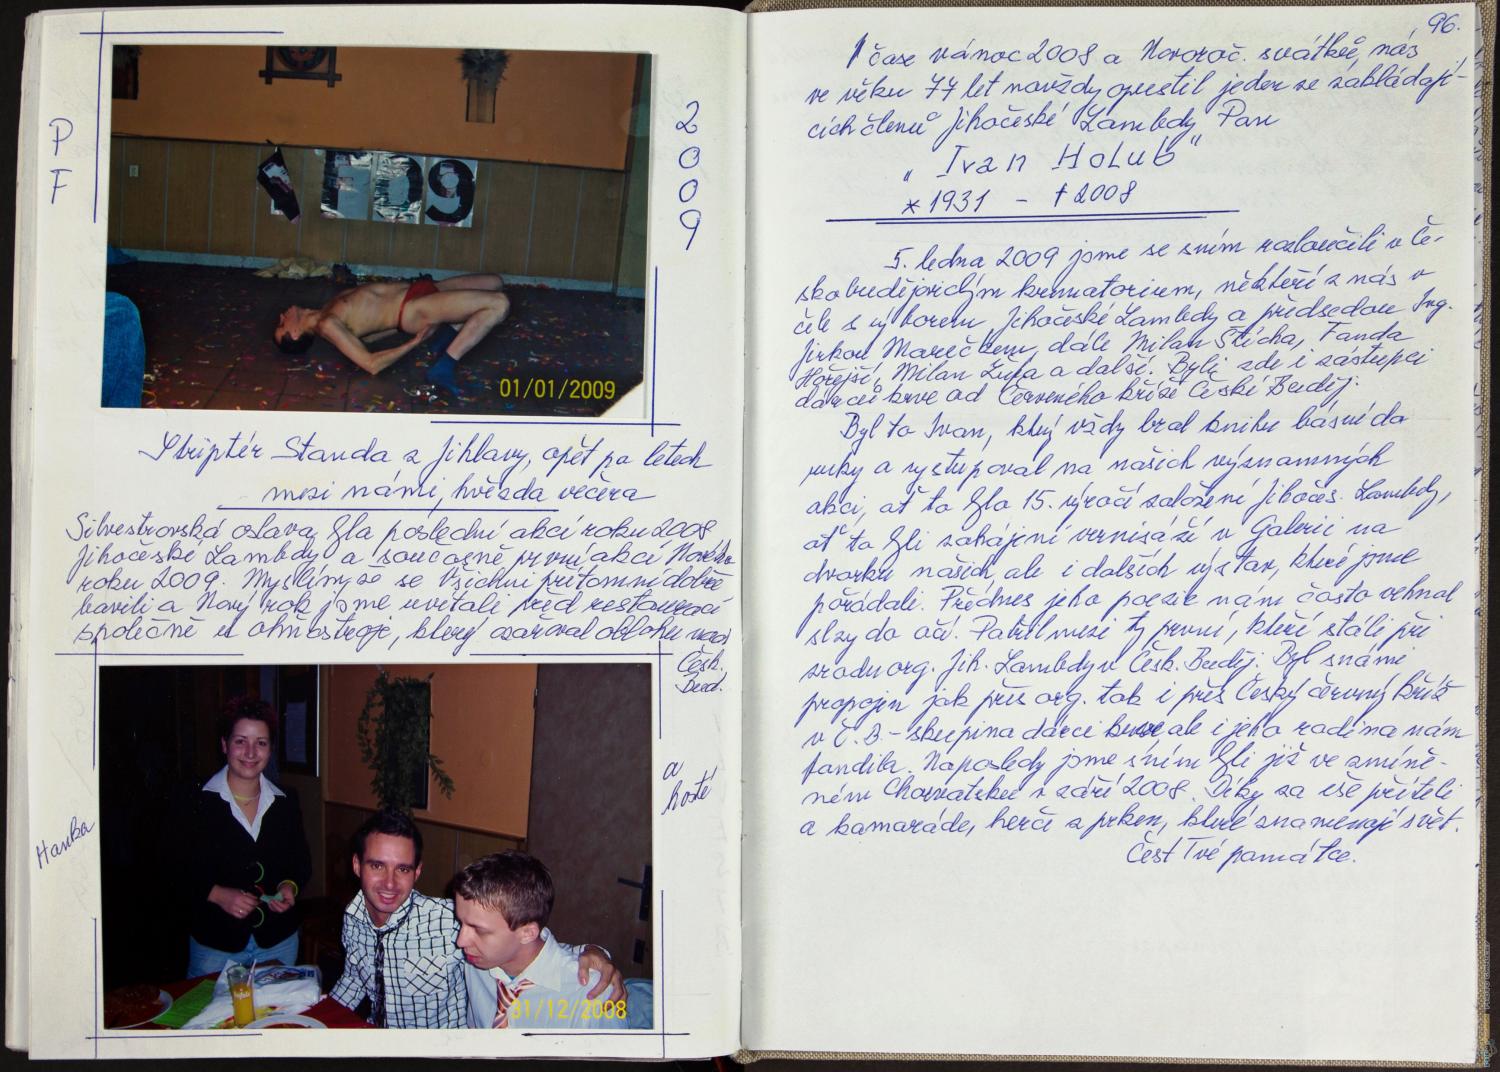 PF
2009
PF 09
01/01/2009
Striptér Standa z Jihlavy, opět po letech
mezi námi, hvězda večera
Silvestrovská oslava byla poslední akcí roku 2008
Jihočeské Lambdy a současně první akcí Nového
roku 2009. Myslím, že se všichni přítomní dobře
bavili a Nový rok jsme uvítali před restaurací
společně u ohňostroje, který ozářoval oblohu nad
Česk.
Buď.
Hanka
a
hosté
31/12/2008
96.
V čase vánoc 2008 a Novoroč. svátků, nás
ve věku 77 let navždy opustil jeden ze zakládají-
cích členů Jihočeské Lambdy Pan
„Ivan Holub"
* 1931 - † 2008
5. ledna 2009 jsme se sním rozloučili v Če-
skobudějovickým krematorium, někteří z nás v
čele s výborem Jihočeské Lambdy a předsedou Ing.
Jirkou Marečkem, dále Milan Štícha, Fanda
Hořejší, Milan a další. Byli zde i zástupci
dárců krve od Červeného kříže České Buděj.
Byl to Ivan, který vždy bral knihu básní do
ruky a vystupoval na našich významných
akcí, ať to byla 15. výročí založení Jihočes. Lambdy,
ať to byli zahájení vernisáží v Galerii na
dvorku našich, ale i dalších výstav, které jsme
pořádali. Přednes jeho poezie nám často vehnal
slzy do očí. Patřil mezi ty první, kteří stáli při
zrodu org. Jih. Lambdy v Česk. Buděj. Byl snámi
propojen jak přes org. tak i přes Český červený kříž
v Č. B. - skupina dárců krve ale i jeho rodina nám
fandila. Naposledy jsme sním byli již ve zmíně-
ném Chorvatsku v září 2008. Díky za vše příteli
a kamaráde, herče z prken, které znamenají svět.
Čest Tvé památce.